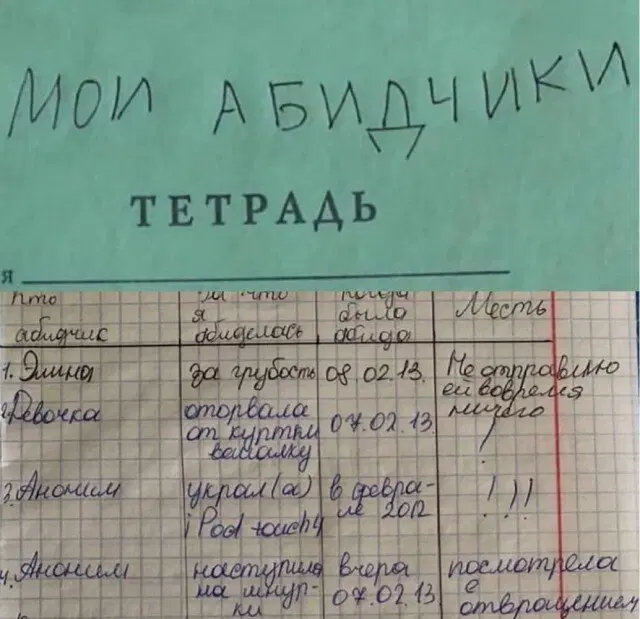 МОИ АБИДЧИКИ
ТЕТРАДЬ
я
кто
абидчик
за что
я
абиделась
когда
было
абида
Месть
1. Элина
за грубость
08.02.13.
Не отправлю
ей вовремя
ничего
2. Девочка
оторвала
от куртки
07.02.13
!
3. Аноним
украл(а)
i Pod touch4
в февра-
ле 2012
!!!
4. Аноним
наступила
на шнур-
ки
вчера
07.02.13
посмотрела
с
отвращением